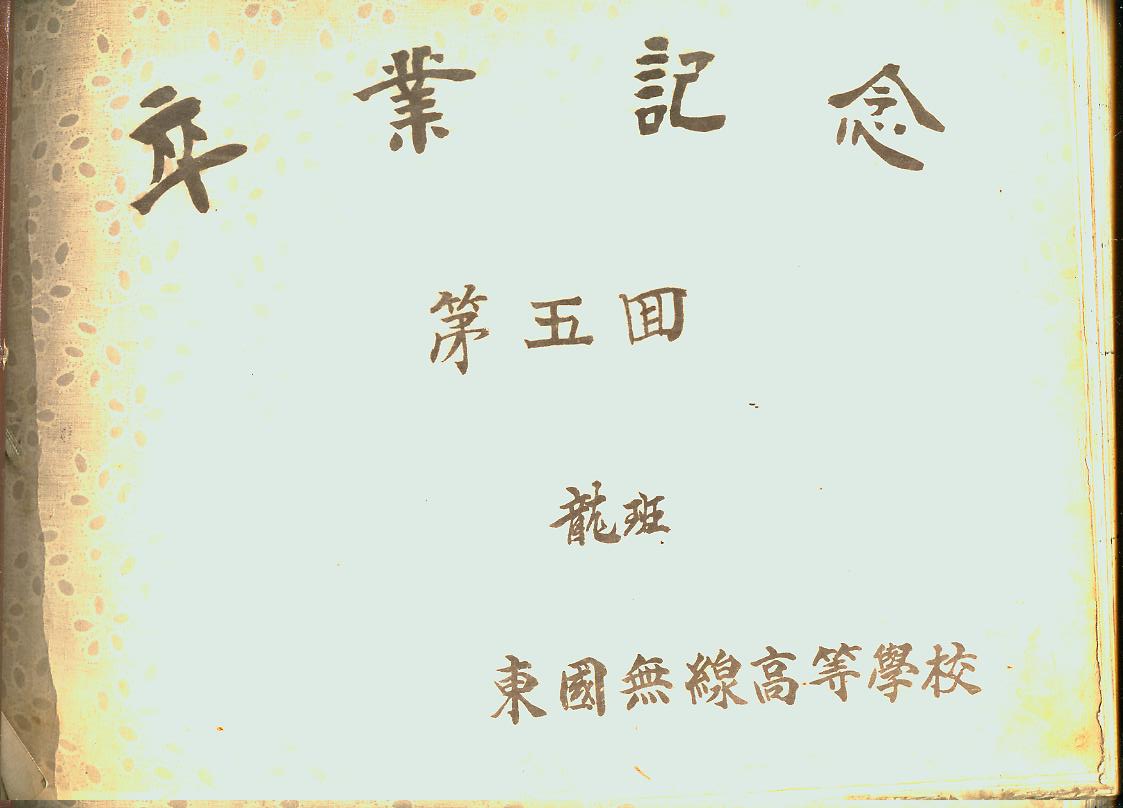 卒業記念
第五回
龍班
東國無線高等學校